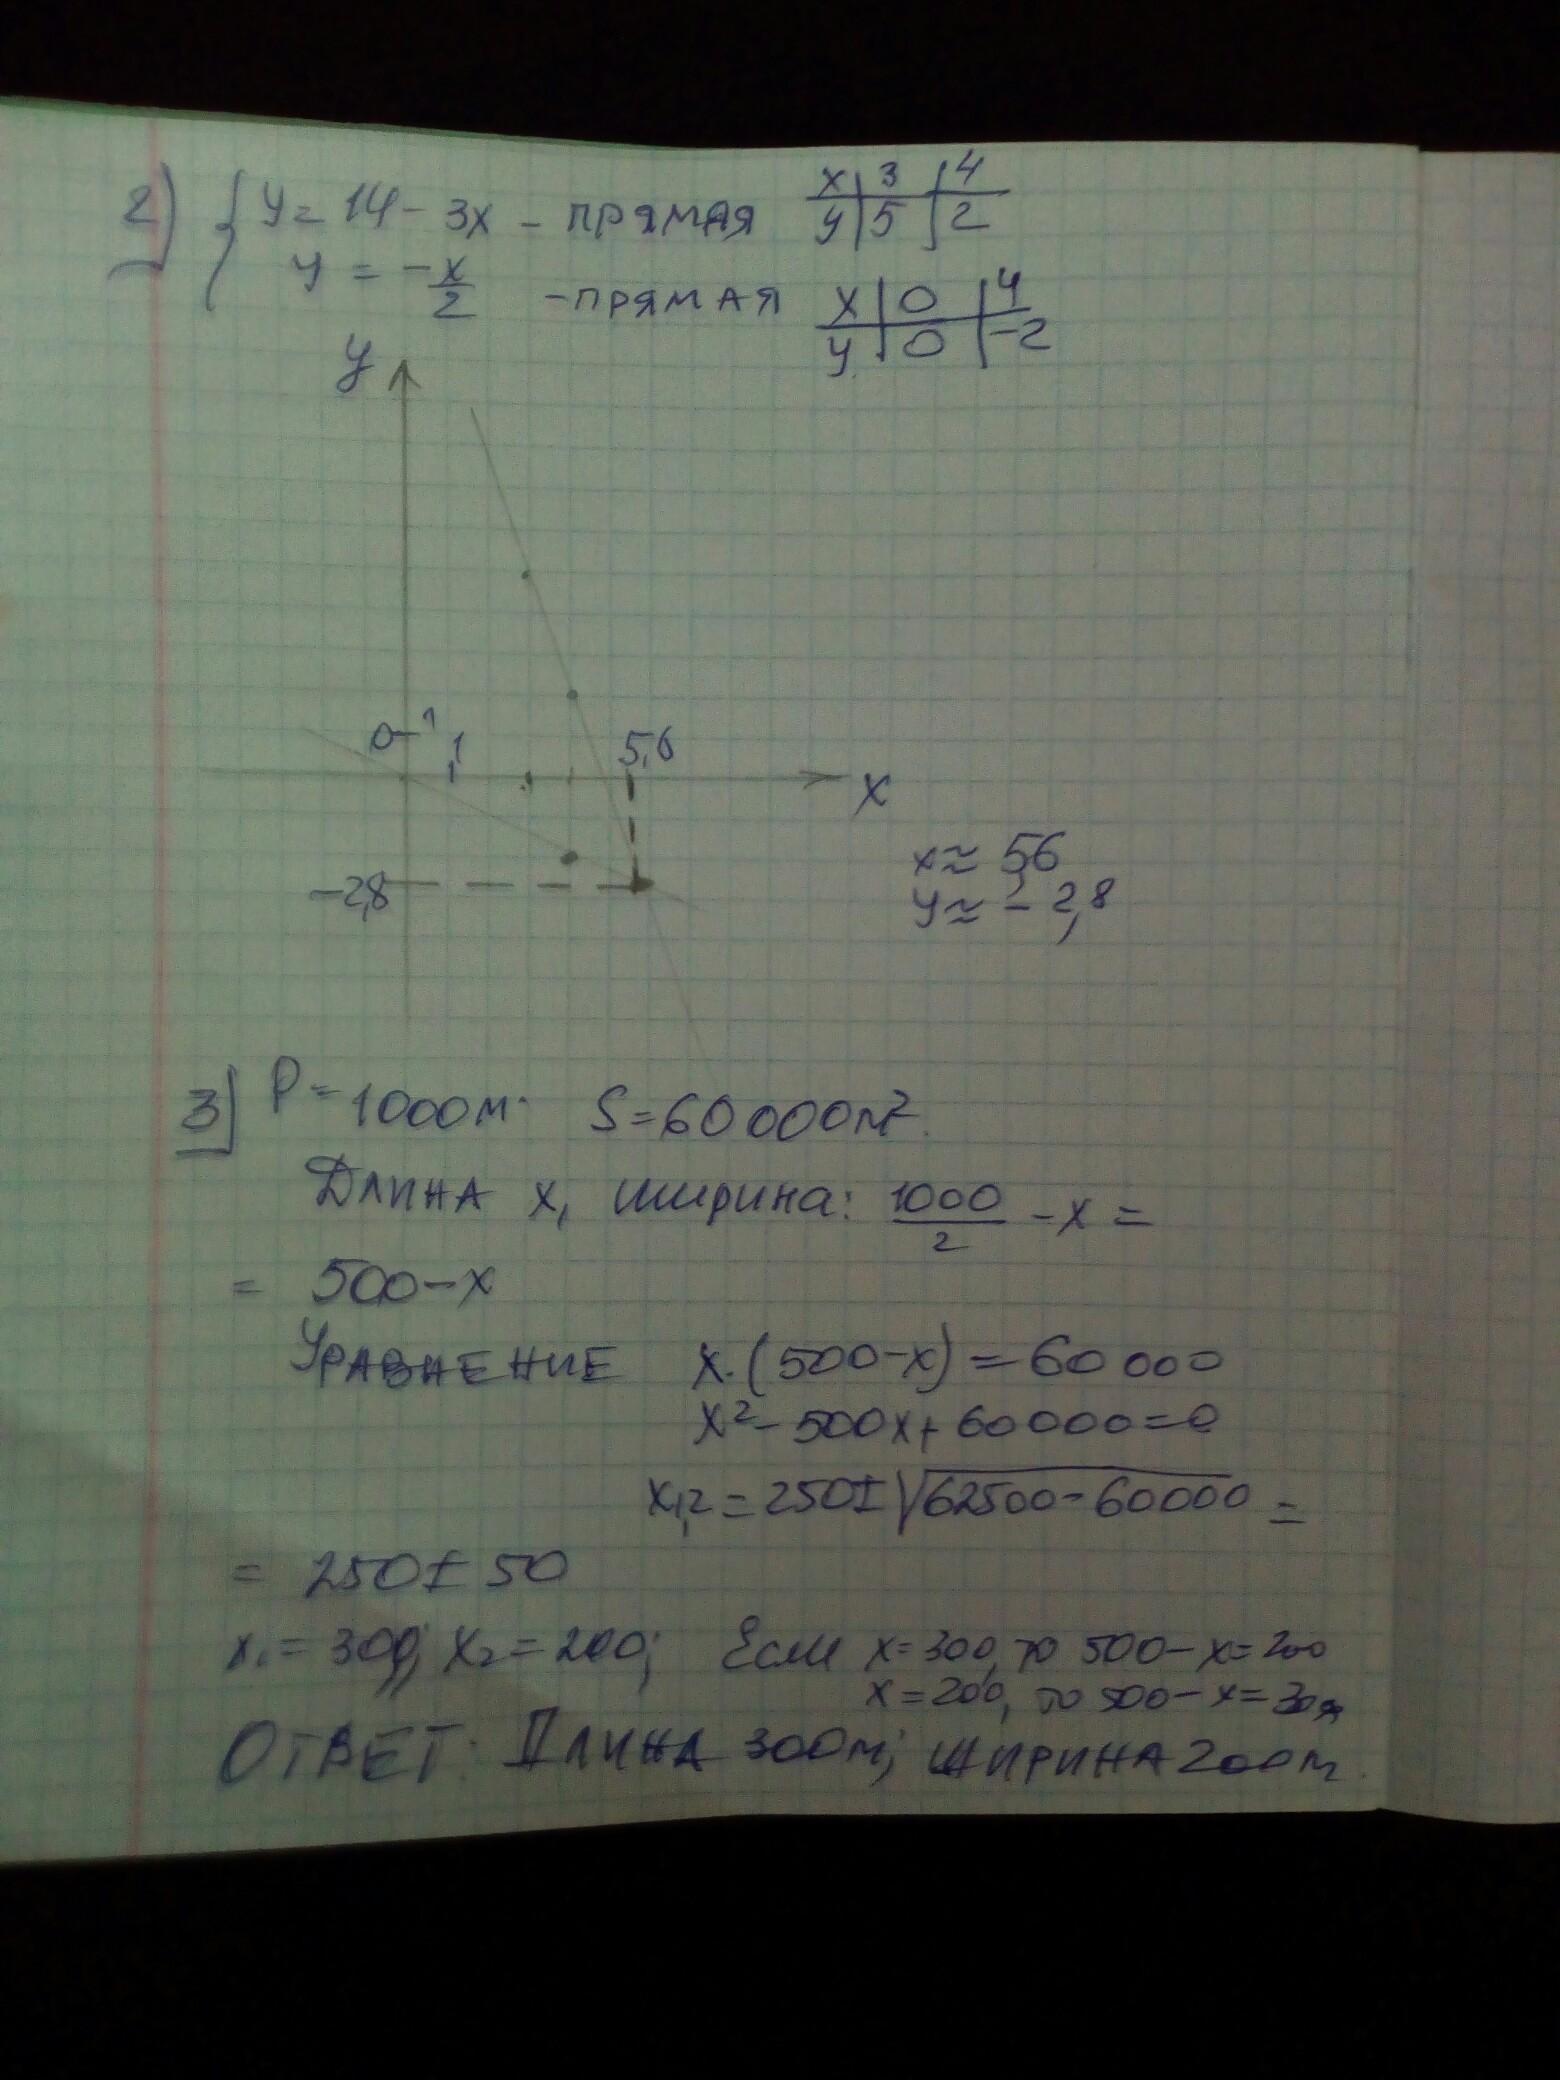 2) { y = 14 - 3x - прямая x | 3 | 4
y | 5 | 2
y = -x/2 - прямая x | 0 | 4
y | 0 | -2
y
0 1 1 5,6
x
x ≈ 5,6
-2,8 y ≈ - 2,8
3) P = 1000м. S = 60 000 м².
Длина x, ширина: 1000/2 - x =
= 500 - x
Уравнение x·(500 - x) = 60 000
x² - 500x + 60 000 = 0
x1,2 = 250 ± √62500 - 60000 =
= 250 ± 50
x1 = 300; x2 = 200; Если x = 300, то 500 - x = 200
x = 200, то 500 - x = 300
Ответ: Длина 300м; ширина 200м.